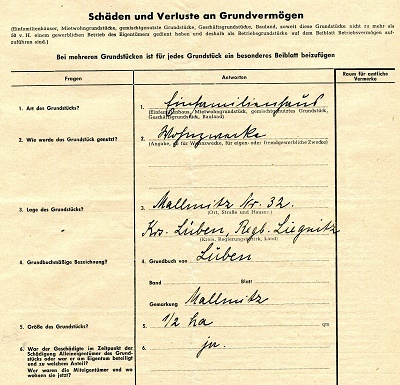 Schäden und Verluste an Grundvermögen
(Einfamilienhäuser, Mietwohngrundstücke, gemischtgenutzte Grundstücke, Geschäftsgrundstücke, Bauland, soweit diese Grundstücke nicht zu mehr als
50 v. H. einem gewerblichen Betrieb des Eigentümers gedient haben und deshalb als Betriebsgrundstücke auf dem Beiblatt Betriebsvermögen auf-
zuführen sind.)
Bei mehreren Grundstücken ist für jedes Grundstück ein besonderes Beiblatt beizufügen
Fragen Antworten Raum für amtliche
Vermerke
1. Art des Grundstücks? 1. Einfamilienhaus
(Einfamilienhaus, Mietwohngrundstück, gemischtgenutztes Grundstück,
Geschäftsgrundstück, Bauland)
2. Wie wurde das Grundstück genutzt? 2. Wohnzwecke
(Angabe, ob für Wohnzwecke, für eigen- oder fremdgewerbliche Zwecke)
3. Lage des Grundstücks? 3. Mallmitz Nr. 32.
(Ort, Straße und Hausnr.)
" Krs. Lüben, Regb. Liegnitz
(Kreis, Regierungsbezirk, Land)
4. Grundbuchmäßige Bezeichnung? 4. Grundbuch von Lüben
Band Blatt
Gemarkung Mallmitz
5. Größe des Grundstücks? 5. 1/2 ha qm
6. War der Geschädigte im Zeitpunkt der 6. ja.
Schädigung Alleineigentümer des Grund-
stücks oder war er am Eigentum beteiligt
und zu welchem Anteil?
Wer waren die Miteigentümer und wo
wohnen sie jetzt?